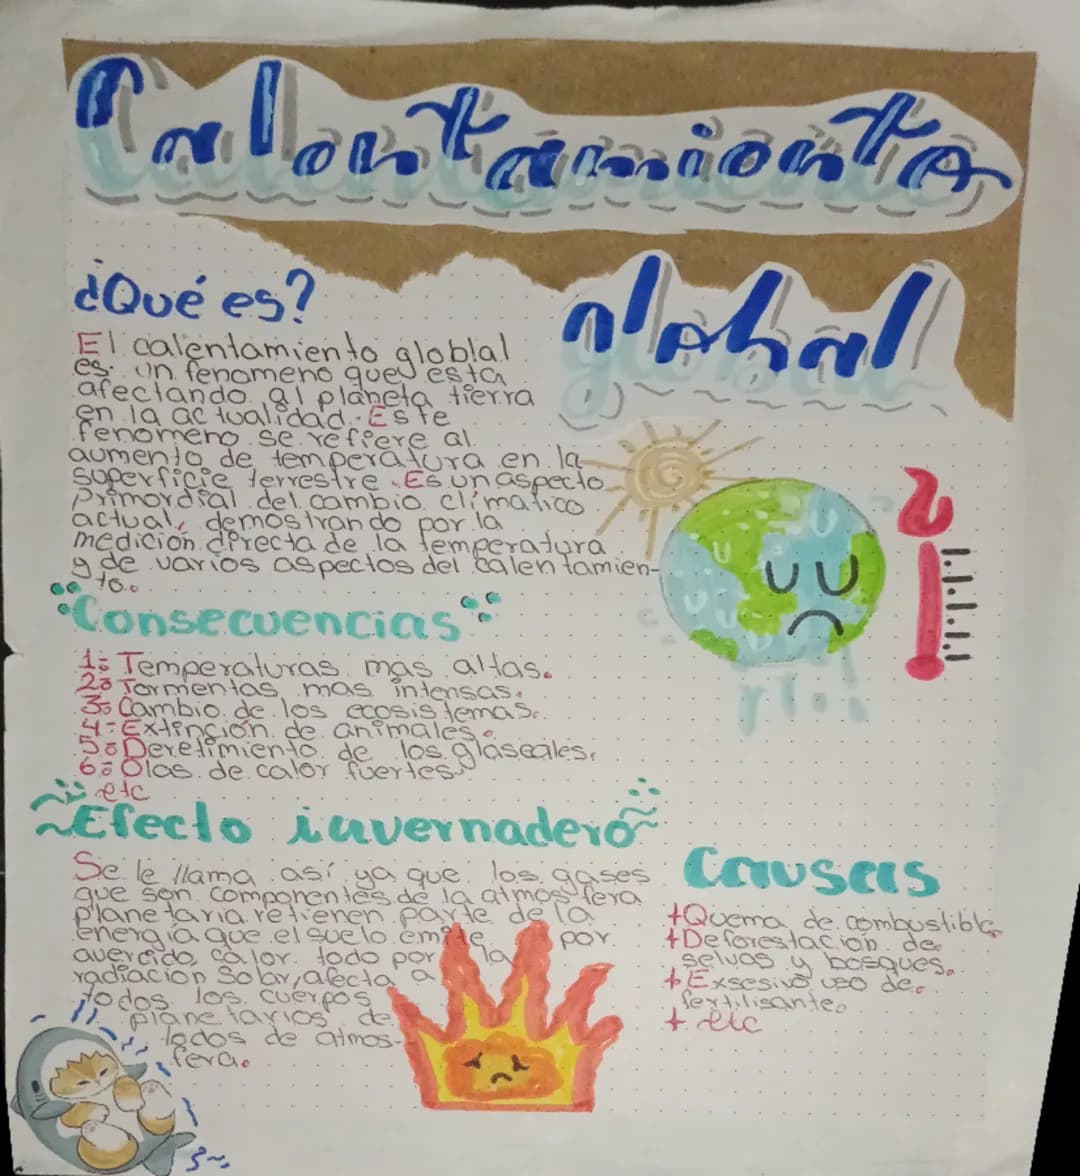 Calentamiento
global
¿Qué es?
El calentamiento globlal
es un fenomeno que esta
afectando al planeta tierra
en la actualidad. Este
fenomeno se refiere al
aumento de temperatura en la
superficie terrestre. Es un aspecto
primordial del cambio climatico
actual, demostrando por la
medicion directa de la temperatura
y de varios aspectos del calentamien-
to.
Consecuencias
1: Temperaturas mas altas.
2: Tormentas mas intensas.
3: Cambio de los ecosistemas.
4: Extinción de animales.
5: Deretimiento de los glaseales.
6: Olas de calor fuertes
etc
Efecto invernadero
Se le llama así ya que los gases
que son componentes de la atmosfera
planetaria retienen parte de la
energía que el suelo emite por
avercido calor. todo por la
radiación solar, afecta a
todos los cuerpos
planetarios de
todos de atmos-
fera.
Causas
+Quema de combustible.
+Deforestación de
selvas y bosques.
+Exsesivo uso de
fertilisante.
+ etc